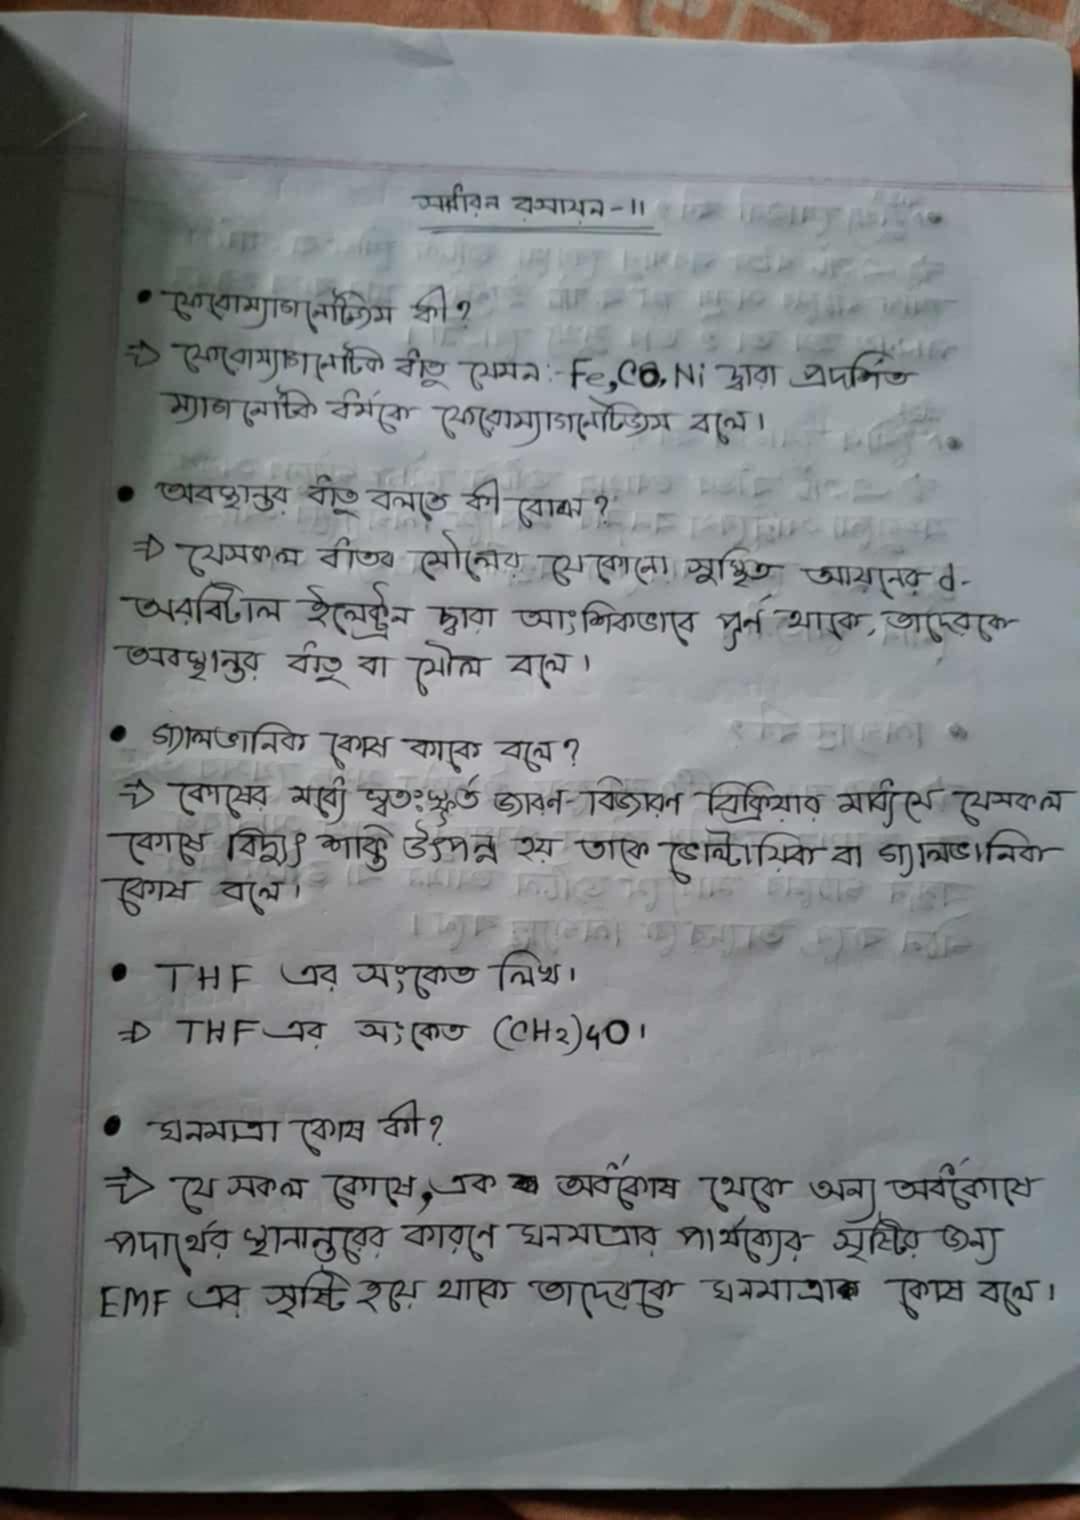 সাধারন রসায়ন-II
• ফেরোম্যাগনেটিজম কী?
⇒ ফেরোম্যাগনেটিক ধাতু যেমন:- Fe, CO, Ni দ্বারা প্রদর্শিত
ম্যাগনেটিক ধর্মকে ফেরোম্যাগনেটিজম বলে।
• অবস্থান্তর ধাতু বলতে কী বোঝ?
⇒ যেসকল ধাতব মৌলের যেকোনো সুস্থিত আয়নের d-
অরবিটাল ইলেক্ট্রন দ্বারা আংশিকভাবে পূর্ন থাকে, তাদেরকে
অবস্থান্তর ধাতু বা মৌল বলে।
• গ্যালভানিক কোষ কাকে বলে?
⇒ কোষের মধ্যে স্বতঃস্ফূর্ত জারন-বিজারণ বিক্রিয়ার মাধ্যমে যেসকল
কোষে বিদ্যুৎ শক্তি উৎপন্ন হয় তাকে ভোল্টায়িক বা গ্যালভানিক
কোষ বলে।
• THF এর সংকেত লিখ।
⇒ THF এর সংকেত (CH2)4O।
• ঘনমাত্রা কোষ কী?
⇒ যে সকল কোষে, এক অর্ধকোষ থেকে অন্য অর্ধকোষে
পদার্থের স্থানান্তরের কারণে ঘনমাত্রার পার্থক্যের সৃষ্টির জন্য
EMF এর সৃষ্টি হয়ে থাকে তাদেরকে ঘনমাত্রা কোষ বলে।